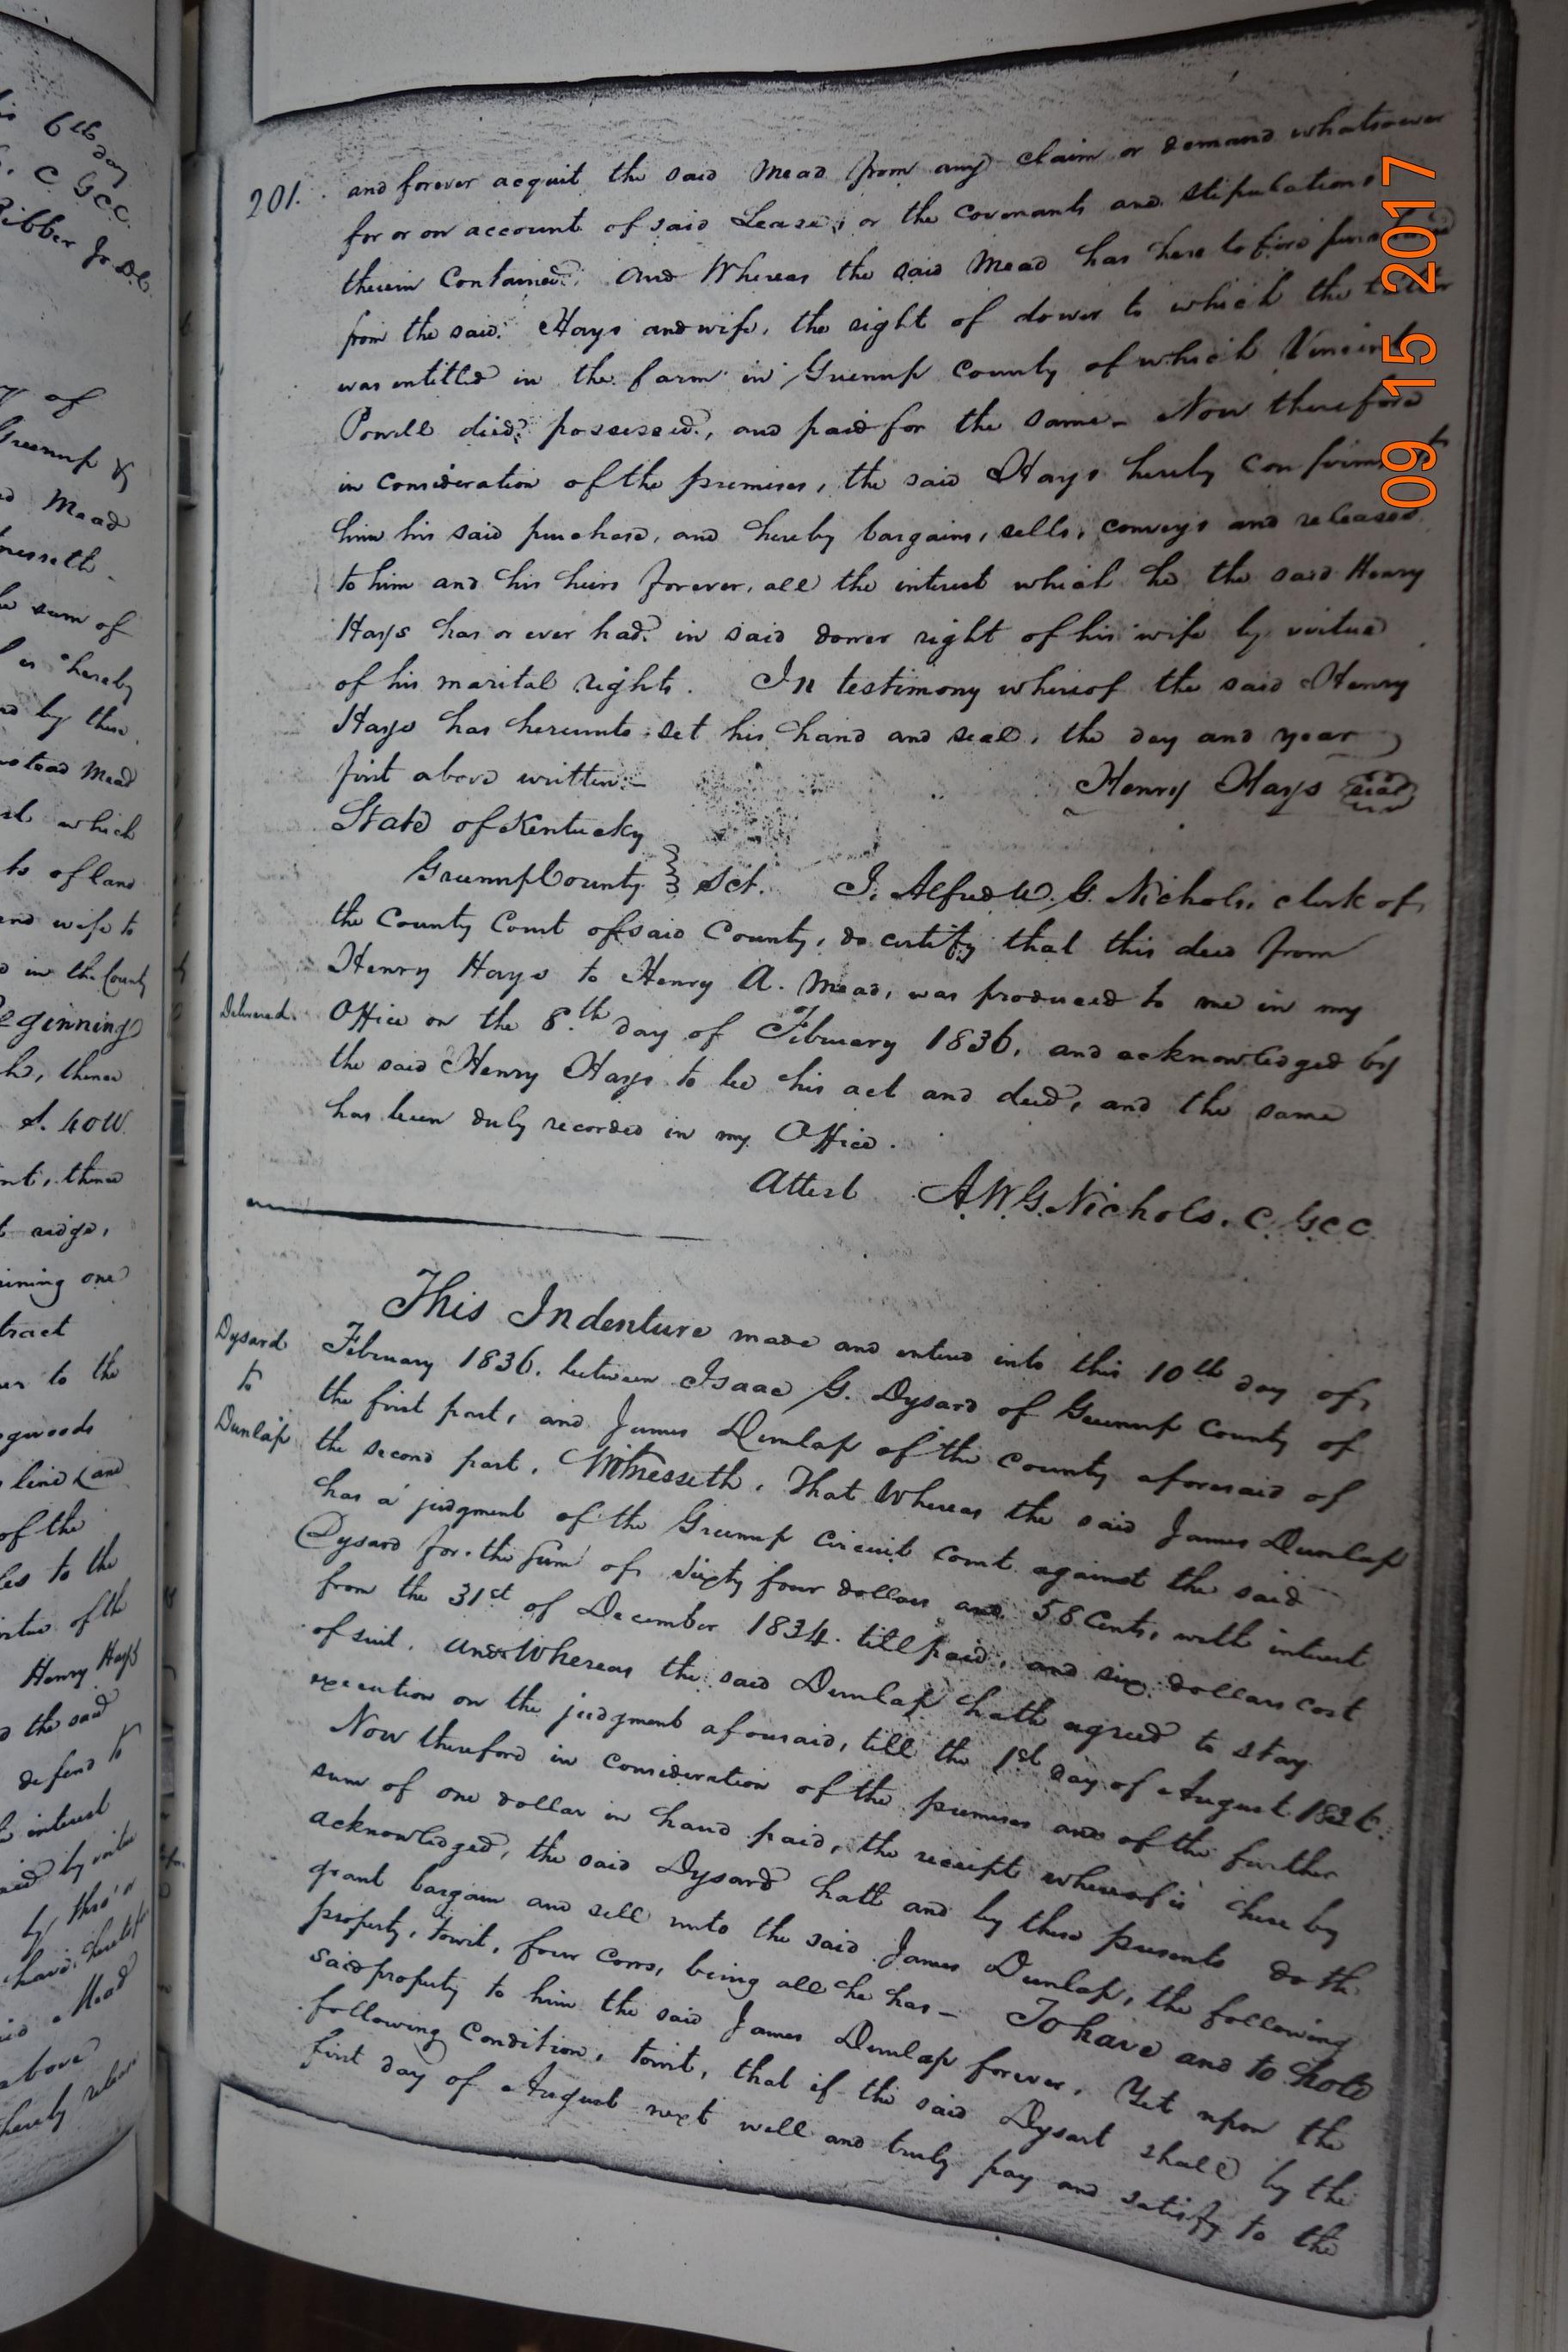 201.
and forever acquit the said Mead from any claim or demand whatsoever
for or on account of said Lease, or the covenants and stipulations
therein Contained. And Whereas the said Mead has here to fore purchased
from the said Hays and wife, the right of dower to which the latter
was entitled in the farm in Greenup County of which Vincent
Powell died possessed, and paid for the same. Now therefore
in consideration of the premises, the said Hays hereby confirms to
him his said purchase, and hereby bargains, sells, conveys and releases
to him and his heirs forever, all the interest which he the said Henry
Hays has or ever had in said dower right of his wife by virtue
of his marital rights. In testimony whereof the said Henry
Hays has hereunto set his hand and seal, the day and year
first above written.
Henry Hays seal
State of Kentucky
Greenup County Sct. I, Alfred W. G. Nichols, clerk of
the County Court of said County, do certify that this deed from
Henry Hays to Henry A. Mead, was produced to me in my
Delivered.
Office on the 8th day of February 1836, and acknowledged by
the said Henry Hays to be his act and deed, and the same
has been duly recorded in my Office.
Attest A.W.G. Nichols. C. G C C
This Indenture made and entered into this 10th day of
Dysard to Dunlap
February 1836. between Isaac G. Dysard of Greenup County of
the first part, and James Dunlap of the County aforesaid of
the second part, Witnesseth, That Whereas the said James Dunlap
has a judgment of the Greenup circuit court against the said
Dysard for the sum of Sixty four dollars and 58 Cents, with interest
from the 31st of December 1834. till paid, and six dollars cost
of suit. And Whereas the said Dunlap hath agreed to stay
execution on the judgment aforesaid, till the 1st day of August 1836.
Now therefore in consideration of the premises and of the further
sum of one dollar in hand paid, the receipt whereof is here by
acknowledged, the said Dysard hath and by these presents doth
grant bargain and sell unto the said James Dunlap, the following
property, towit, four Cows, being all he has — To have and to hold
said property to him the said James Dunlap forever. Yet upon the
following Condition, towit, that if the said Dysart shall by the
first day of August next well and truly pay and satisfy to the
09 15 2017
6th day
C. G C C.
of
Greenup &
Mead
sum of
hereby
by these
Mead
which
of land
and wife to
in the County
Beginning
thence
S. 40 W.
thence
ridge,
one
tract
to the
line & and
of the
to the
of the
Henry Hays
the said
defend
interest
by
have
Mead
above
hereby